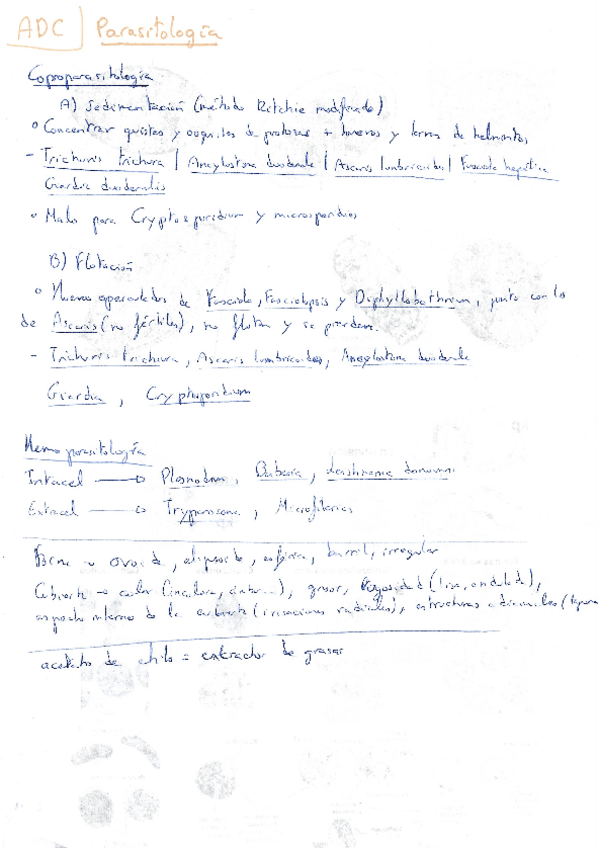 ADC | Parasitología
Coproparasitología
A) Sedimentación (método Ritchie modificado)
° Concentrar quistes y ooquistes de protozoos + huevos y larvas de helmintos
- Trichuris trichura | Ancylostoma duodenale | Ascaris lumbricoides | Fasciola hepática
Giardia duodenalis
° Malo para Cryptosporidium y microsporidios
B) Flotación
° Huevos operculados de Fasciola, Fasciolopsis y Diphyllobothrium, junto con los
de Ascaris (no fértiles), no flotan y se pierden.
- Trichuris trichiura, Ascaris lumbricoides, Ancylostoma duodenale
Giardia, Cryptosporidium
Hemoparasitología
Intracel → Plasmodium, Babesia, Leishmania donovani
Extracel → Trypanosoma, Microfilarias
Forma → ovoide, elipsoide, esférica, barril, irregular
Cubierta → color (incolora, ...), grosor, rugosidad (lisa, ondulada),
aspecto interno de la cubierta (estriaciones radiales), estructuras adicionales (
acetato de etilo = extractor de grasas